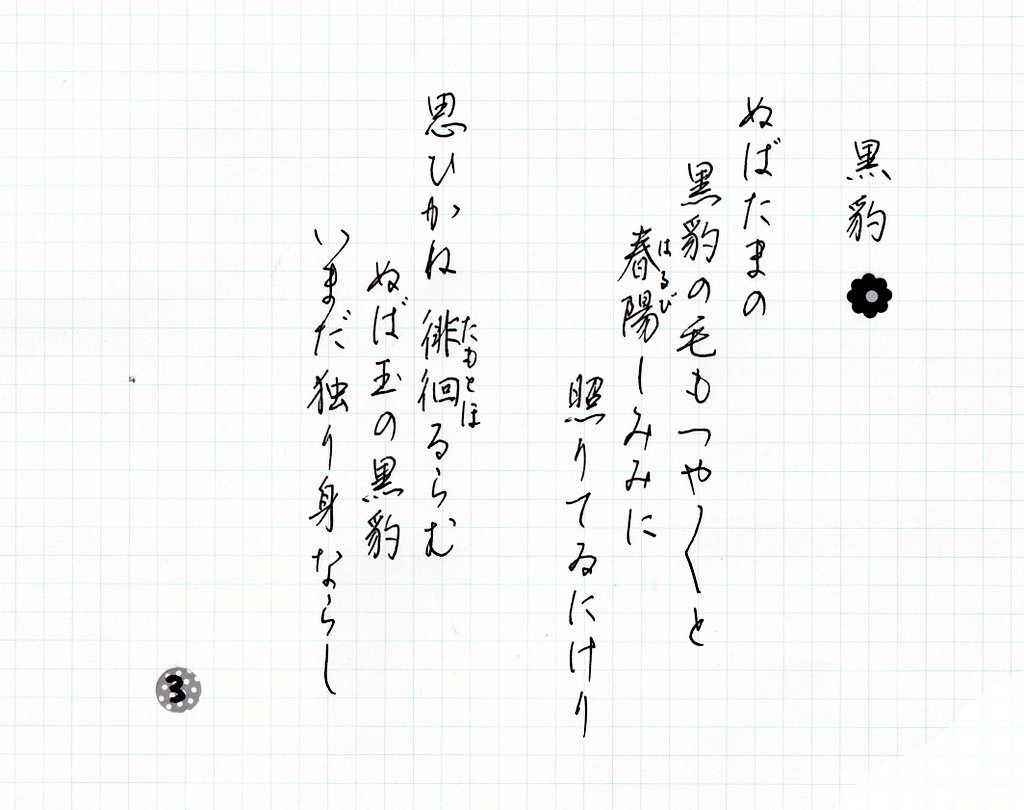 黒豹
ぬばたまの
黒豹の毛もつや〱と
春陽しみみに
はるび
照りてゐにけり
思ひかね徘徊るらむ
たもとほ
ぬば玉の黒豹
いまだ独り身ならし
3